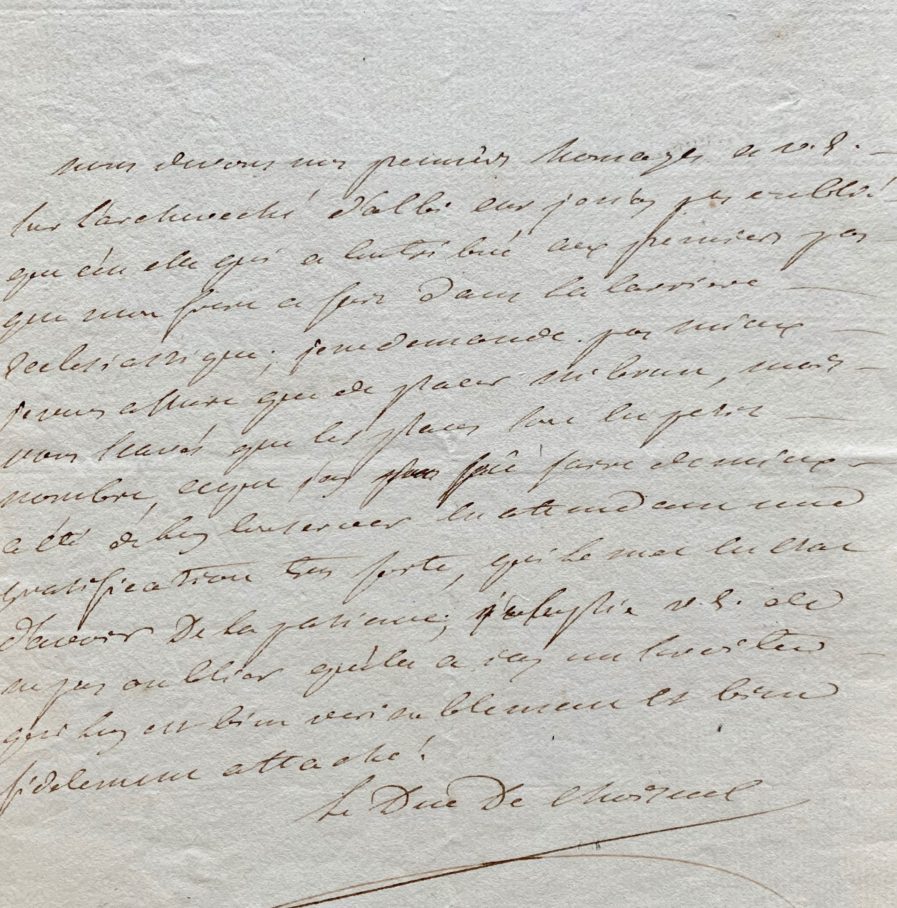 nous devons nos premiers homages a v. E.
sur l'archeveché d'albi car je n'ay pas oublié
que c'est elle qui a contribué aux premiers pas
que mon frere a fait dans la carriere
Ecclesiastique; je ne demande pas mieux
je vous assure que de placer mr brun, mais
vous savés que les places sont en petit
nombre, ce que j'ay pû faire de mieux
a été de luy conserver en attendant une
gratification tres forte, qui le met en Etat
d'avoir de la patience; je suplie v. E. de
ne pas oublier qu'elle a icy un serviteur
qui luy est bien veritablement et bien
fidelement attaché.
Le Duc De Choiseul